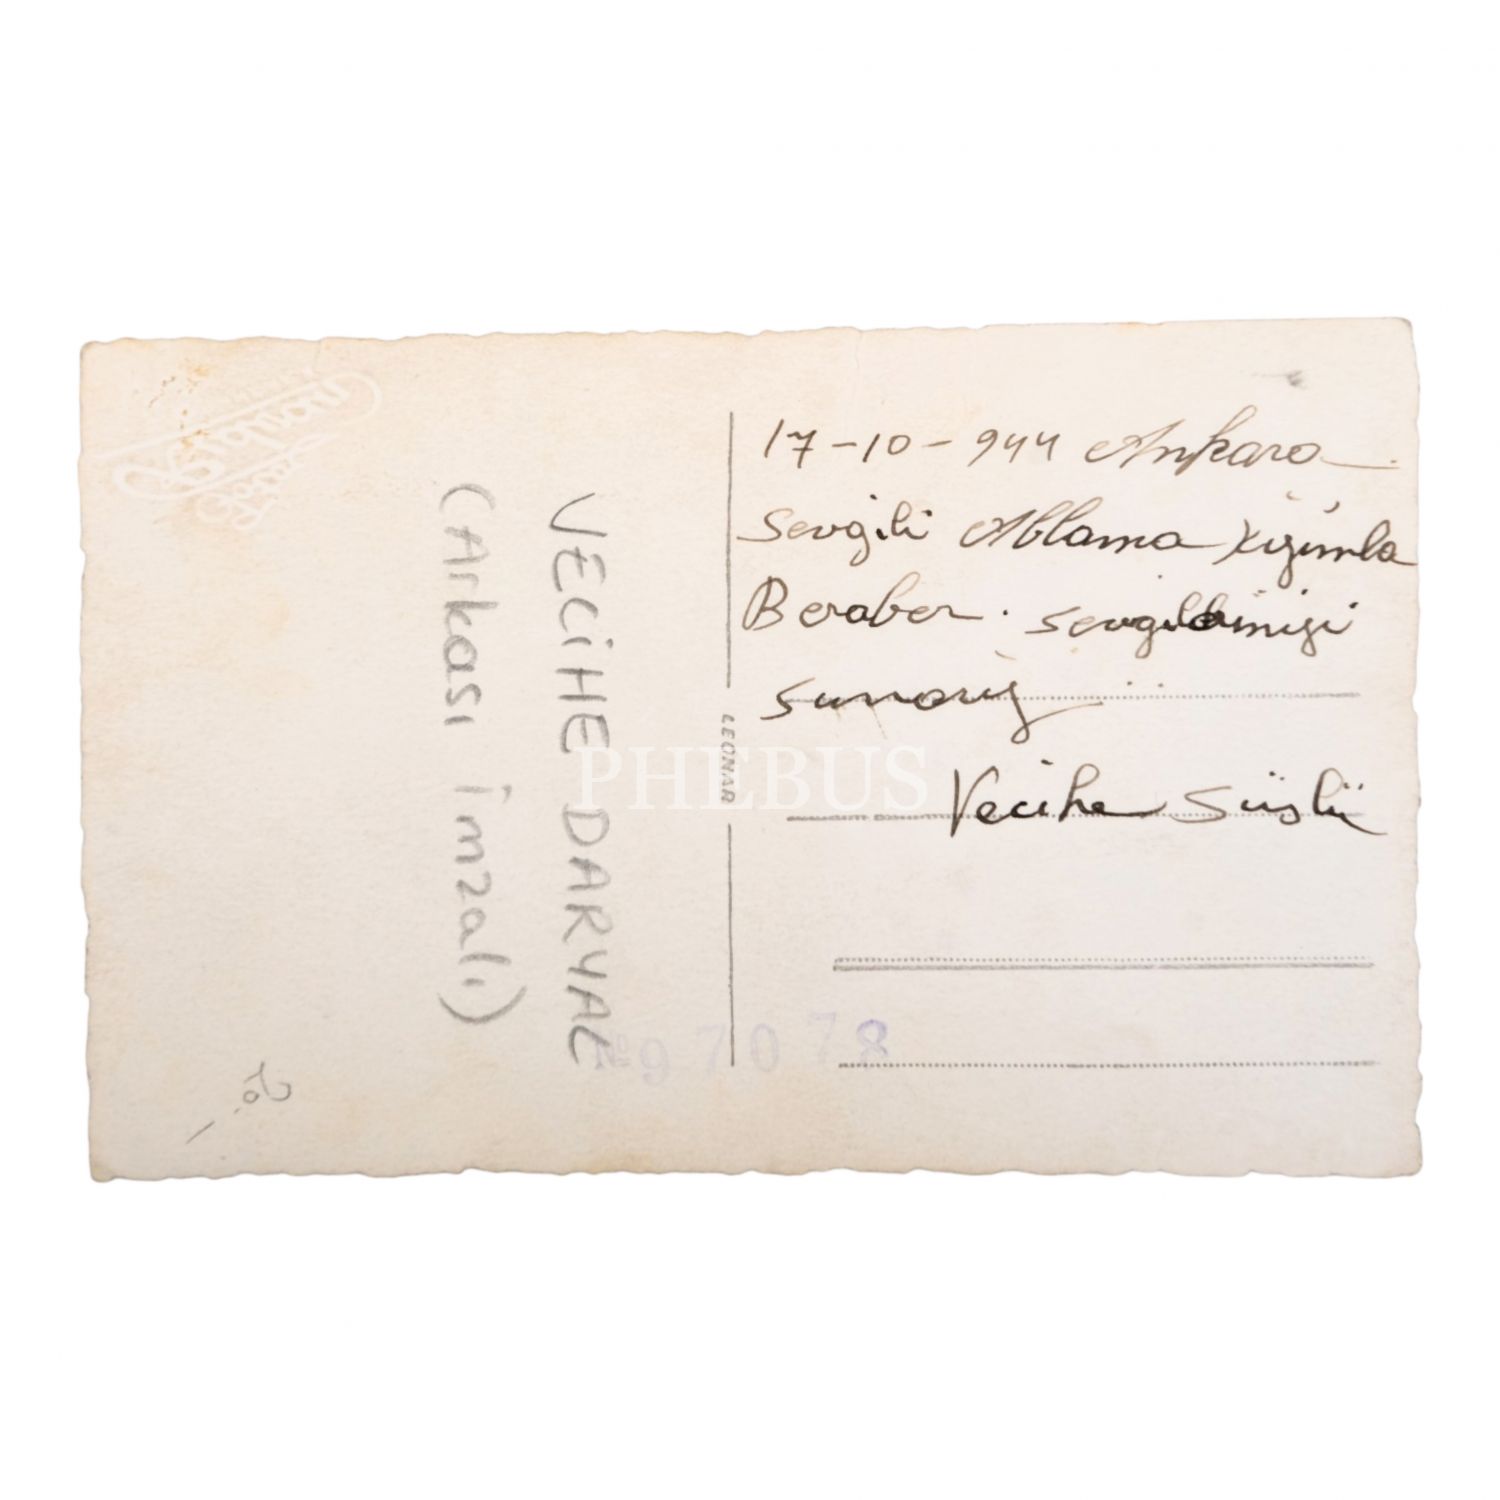 17-10-944 Ankara
Sevgili Ablama Kızımla
Beraber. sevgilerimizi
sunarız
Vecihe Süslü
VECİHE DARYAL
(Arkası İmzalı)
LEONAR
PHEBUS
Nº 97078